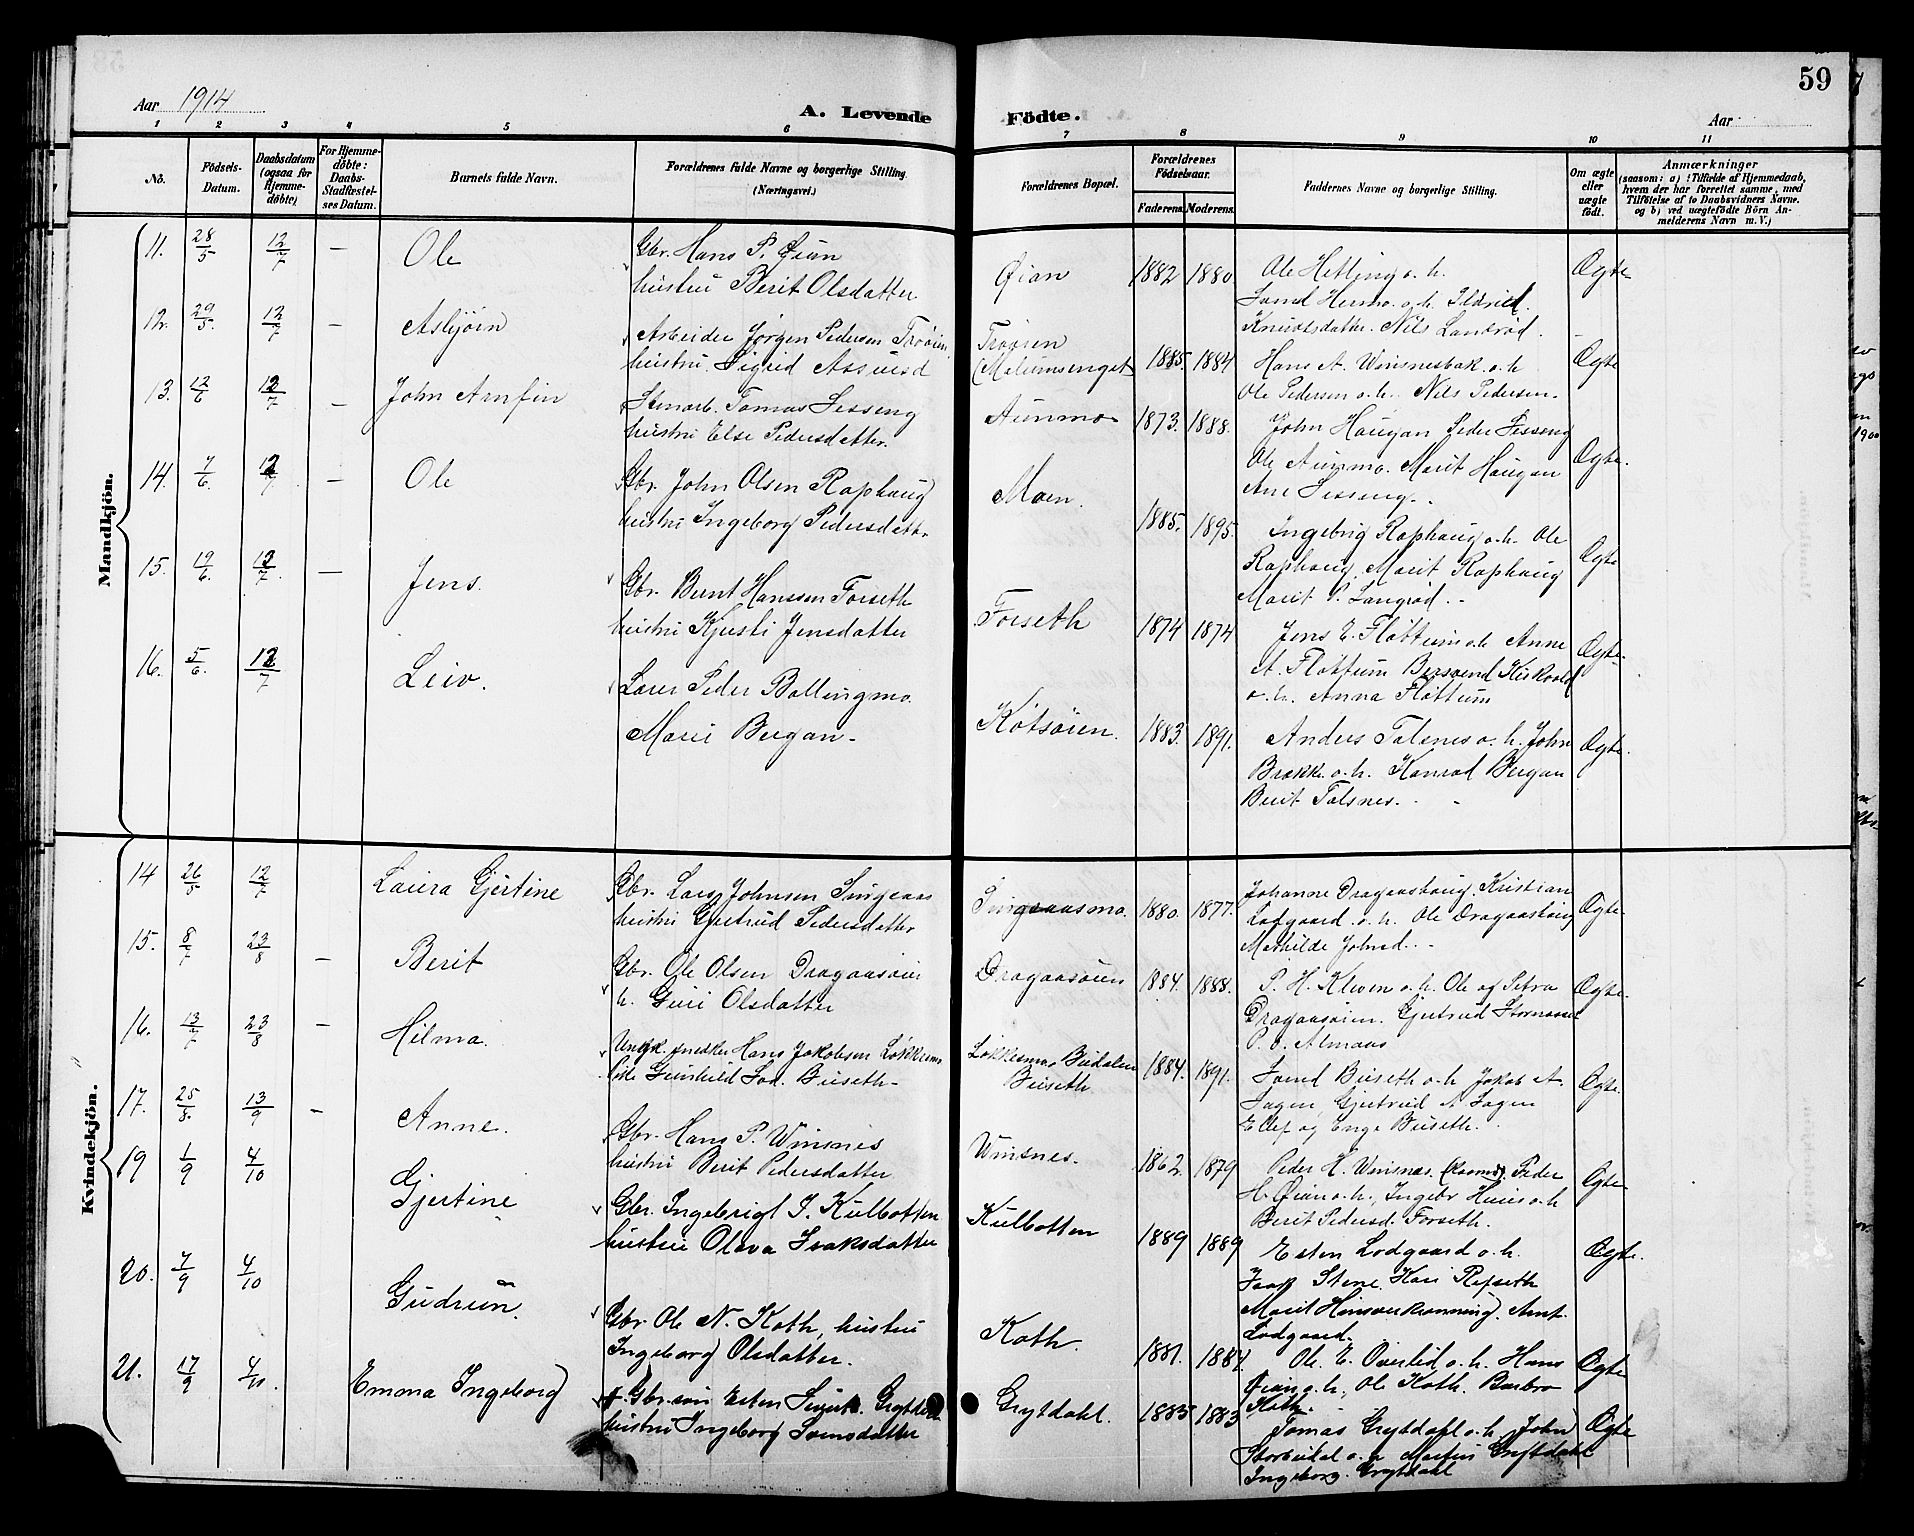 59
Aar 1914
A. Levende Födte.
Aar
1 2 3 4 5 6 7 8 9 10 11
No.
Födsels-Datum.
Daabsdatum (ogsaa for Hjemme-döbte)
For Hjemme-döbte: Daabs-Stadfæstel-ses Datum.
Barnets fulde Navn.
Forældrenes fulde Navne og borgerlige Stilling. (Næringsvei.)
Forældrenes Bopæl.
Forældrenes Födselsaar.
Faderens. Moderens.
Faddernes Navne og borgerlige Stilling.
Om ægte eller uægte födt.
Anmærkninger
(saasom: a) i Tilfælde af Hjemmedaab, hvem der har forrettet samme, med Tilföielse af to Daabsvidners Navne. og b) ved uægtefödte Börn An-melderens Navn m. V.)
Mandkjön.
11. 28/5 12/7 — Ole
Gbr. Hans P. Øian
hustru Berit Olsdatter
Øian 1882 1880
Ole Hetling o. h.
Svend Hermo o. h. Ildrid
Knutsdatter. Nils Langrød.
Ægte
12. 29/5 12/7 — Asbjørn
Arbeider Jørgen Pedersen Trøøien
hustru. Sigrid
Trøøien
(Melumsenget 1885 1884
Hans A. Winsnesbak o. h.
Ole Pedersen o. h. Nils Pedersen.
Ægte
13. 12/6 12/7 — John Arnfin
Stenarb. Tomas Sesseng
hustru Else Pedersdatter.
Aunmo 1873. 1888.
John Haugan Peder Sesseng
Ole Aunmo. Marit Haugan
Ane Sesseng.
Ægte.
14. 7/6 12/7 — Ole
Gbr. John Olsen Raphaug
hustru Ingeborg Pedersdatter
Moen. 1885. 1895.
Ingebrig Raphaug o. h. Ole
Raphaug. Marit Raphaug
Marit P. Langrød.
Ægte
15. 19/6 12/7. — Jens.
Gbr. Bernt Hanssen Forseth
hustru Kjersti Jensdatter
Forseth 1874 1874
Jens E. Fløttum o. h. Anne
A. Fløttum Bersvend Kirkvold
o. h. Anna Fløttum
Ægte.
16. 5/6 12/7 Leiv.
Lærer Peder Bollingmo.
Marie Bergan.
Kotsøien. 1883. 1891.
Anders Talsnes o. h. John
Brække o. h. Konrad Bergan
Berit Talsnes.
Ægte.
Kvindekjön.
14 26/5 12/7 Laura Gjertine
Gbr. Lars Johnsen Singsaas
hustru Gjertrud Pedersdatter
Singsaasmo. 1880. 1877.
Johanne Dragaashaug. Kristian
Lodgaard o. h. Ole Dragaashaug
Mathilde Johnsd.
Ægte
15. 8/7 23/8 — Berit
Gbr. Ole Olsen Dragaasøien
h. Guri Olsdatter
Dragaasøien 1884. 1888.
P. H. Kleven o. h. Ole og Petra
Dragaasøien. Gjertrud
P. O. Almaas
Ægte.
16. 13/7 23/8 — Hilma.
Ungk. snedker Hans Jakobsen Løkkesmo
Pike Gunhild Lod. Buseth
Løkkesmo Budalen
Buseth. 1884. 1891.
Svend Buseth o. h. Jakob A.
Fagen, Gjertrud A Fagen
Ellef og Enge Buseth.
Ægte.
17. 25/8. 13/9 — Anne.
Gbr. Hans P. Winsnes
hustru Berit Pedersdatter
Winsnes. 1862. 1879
Peder H. Winsnes. Peder
H. Øian o. h., Ingebr Huus o. h
Berit Pedersd. Forseth.
Ægte
19 1/9 4/10 Gjertine
Gbr. Ingebrigt J. Kulbotten
hustru Olava Isaksdatter
Kulbotten 1889 1889
Esten Lodgaard o. h.
Isak Stene Kari Refseth
Marit Arnt.
Lodgaard.
Ægte.
20. 7/9 4/10 Gudrun.
Gbr. Ole N. Koth, hustru
Ingeborg Olsdatter.
Koth. 1881. 1884.
Ole. E. Overlid o. h. Hans
Øian o. h., Ole Koth. Barbro
Koth.
Ægte
21. 17/9 4/10. Emma Ingeborg
Gbr. søn Esten Grytdahl
hustru Ingeborg Svensdatter
Grytdahl. 1885 1883
Tomas Grytdahl o. h. John
Storbudal o. h Martin Grytdahl
Ingeborg. Grytdahl
Ægte